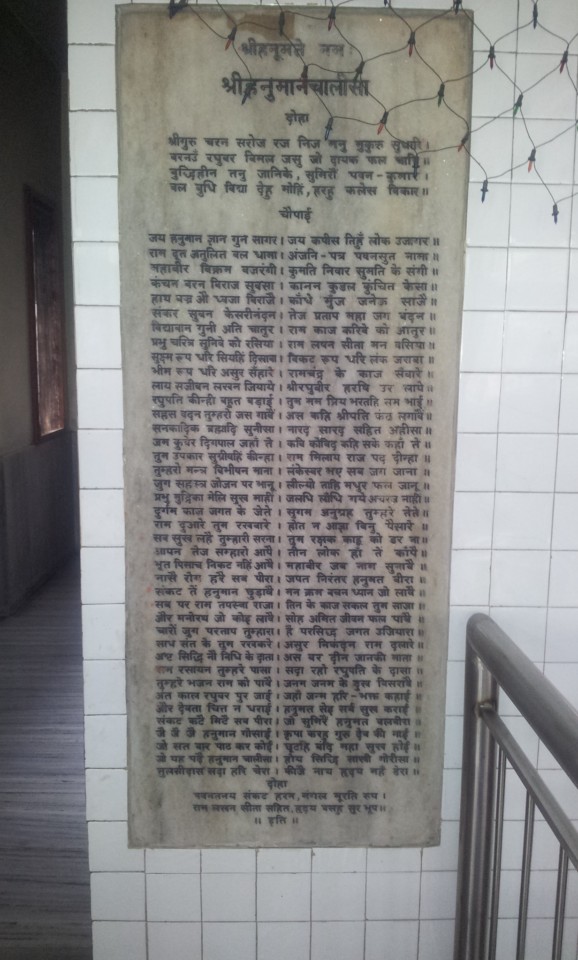 श्रीहनूमते नमः
श्रीहनुमानचालीसा
दोहा
श्रीगुरु चरन सरोज रज निज मनु मुकुरु सुधारि।
बरनउँ रघुबर बिमल जसु जो दायक फल चारि॥
बुद्धिहीन तनु जानिके, सुमिरौं पवन-कुमार।
बल बुधि बिद्या देहु मोहिं, हरहु कलेस बिकार॥
चौपाई
जय हनुमान ज्ञान गुन सागर। जय कपीस तिहुँ लोक उजागर॥
राम दूत अतुलित बल धामा। अंजनि-पुत्र पवनसुत नामा॥
महाबीर बिक्रम बजरंगी। कुमति निवार सुमति के संगी॥
कंचन बरन बिराज सुबेसा। कानन कुंडल कुंचित केसा॥
हाथ बज्र औ ध्वजा बिराजै। काँधे मूँज जनेऊ साजै॥
संकर सुवन केसरीनंदन। तेज प्रताप महा जग बंदन॥
बिद्यावान गुनी अति चातुर। राम काज करिबे को आतुर॥
प्रभु चरित्र सुनिबे को रसिया। राम लषन सीता मन बसिया॥
सूक्ष्म रूप धरि सियहिं दिखावा। बिकट रूप धरि लंक जरावा॥
भीम रूप धरि असुर सँहारे। रामचंद्र के काज सँवारे॥
लाय सजीवन लखन जियाये। श्रीरघुबीर हरषि उर लाये॥
रघुपति कीन्ही बहुत बड़ाई। तुम मम प्रिय भरतहि सम भाई॥
सहस बदन तुम्हरो जस गावैं। अस कहि श्रीपति कंठ लगावैं॥
सनकादिक ब्रह्मादि मुनीसा। नारद सारद सहित अहीसा॥
जम कुबेर दिगपाल जहाँ ते। कबि कोबिद कहि सके कहाँ ते॥
तुम उपकार सुग्रीवहिं कीन्हा। राम मिलाय राज पद दीन्हा॥
तुम्हरो मन्त्र बिभीषन माना। लंकेस्वर भए सब जग जाना॥
जुग सहस्त्र जोजन पर भानू। लील्यो ताहि मधुर फल जानू॥
प्रभु मुद्रिका मेलि मुख माहीं। जलधि लाँघि गये अचरज नाहीं॥
दुर्गम काज जगत के जेते। सुगम अनुग्रह तुम्हरे तेते॥
राम दुआरे तुम रखवारे। होत न आज्ञा बिनु पैसारे॥
सब सुख लहै तुम्हारी सरना। तुम रक्षक काहू को डर ना॥
आपन तेज सम्हारो आपै। तीन लोक हाँक तें काँपै॥
भूत पिसाच निकट नहिं आवै। महाबीर जब नाम सुनावै॥
नासै रोग हरै सब पीरा। जपत निरंतर हनुमत बीरा॥
संकट तें हनुमान छुड़ावै। मन क्रम बचन ध्यान जो लावै॥
सब पर राम तपस्वी राजा। तिन के काज सकल तुम साजा॥
और मनोरथ जो कोइ लावै। सोइ अमित जीवन फल पावै॥
चारों जुग परताप तुम्हारा। है परसिद्ध जगत उजियारा॥
साधु संत के तुम रखवारे। असुर निकंदन राम दुलारे॥
अष्ट सिद्धि नौ निधि के दाता। अस बर दीन जानकी माता॥
राम रसायन तुम्हरे पासा। सदा रहो रघुपति के दासा॥
तुम्हरे भजन राम को पावै। जनम जनम के दुख बिसरावै॥
अंत काल रघुबर पुर जाई। जहाँ जन्म हरि-भक्त कहाई॥
और देवता चित्त न धरई। हनुमत सेइ सर्ब सुख करई॥
संकट कटै मिटै सब पीरा। जो सुमिरै हनुमत बलबीरा॥
जै जै जै हनुमान गोसाईं। कृपा करहु गुरु देव की नाईं॥
जो सत बार पाठ कर कोई। छूटहि बंदि महा सुख होई॥
जो यह पढ़ै हनुमान चालीसा। होय सिद्धि साखी गौरीसा॥
तुलसीदास सदा हरि चेरा। कीजै नाथ हृदय महँ डेरा॥
दोहा
पवनतनय संकट हरन, मंगल मूरति रूप।
राम लखन सीता सहित, हृदय बसहु सुर भूप॥
॥ इति ॥